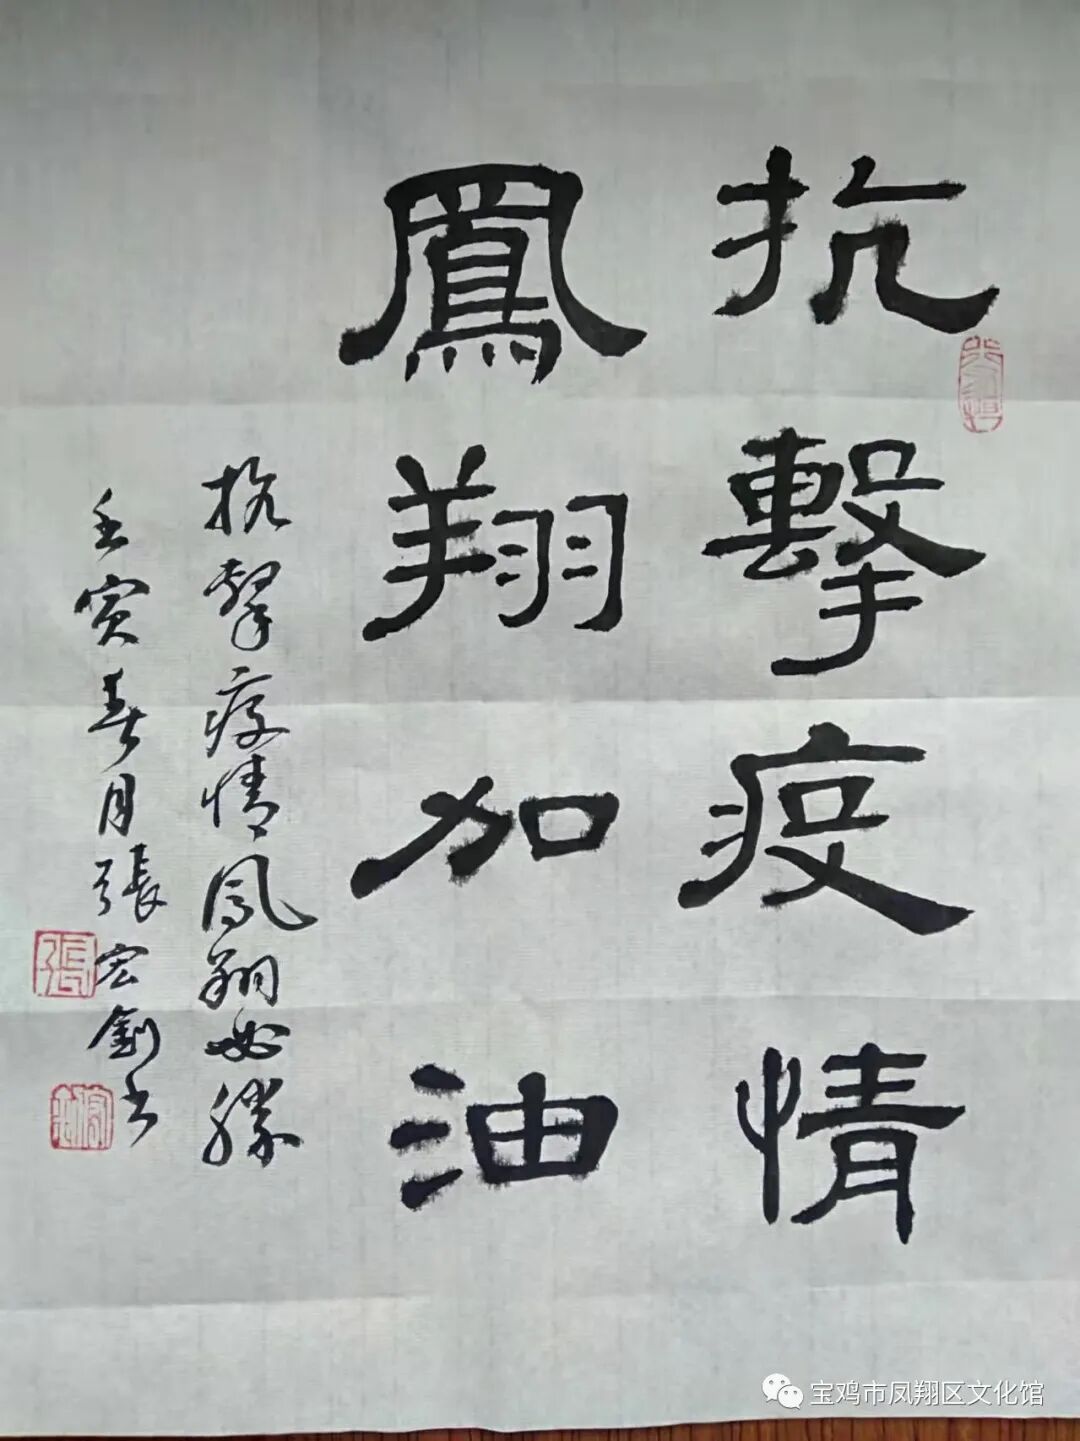 抗擊疫情
鳳翔加油
抗擊疫情鳳翔必勝
壬寅春月張宏劍书
張
宝鸡市凤翔区文化馆